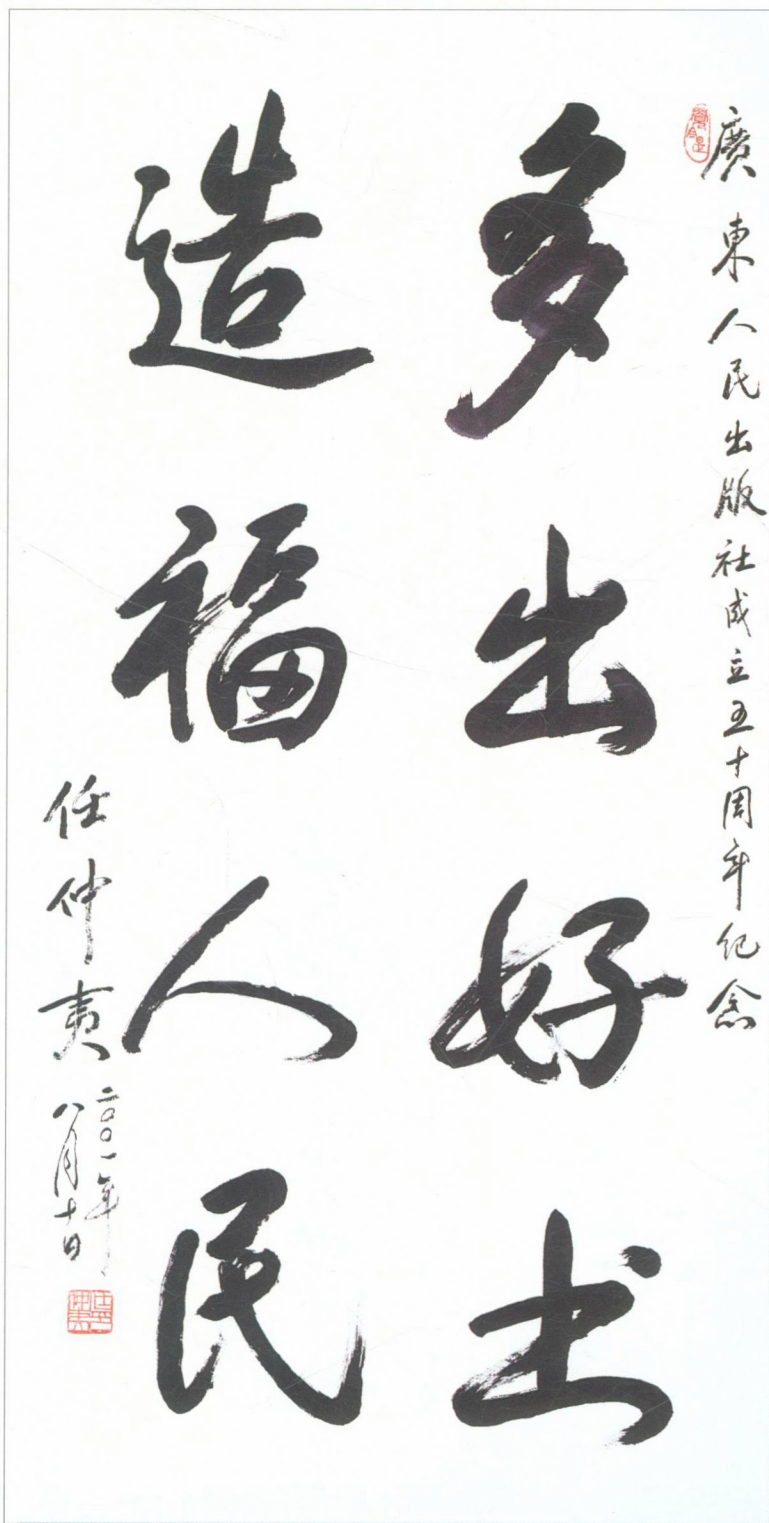 廣東人民出版社成立五十周年纪念
多出好书
造福人民
任仲夷
二〇〇一年
八月十日